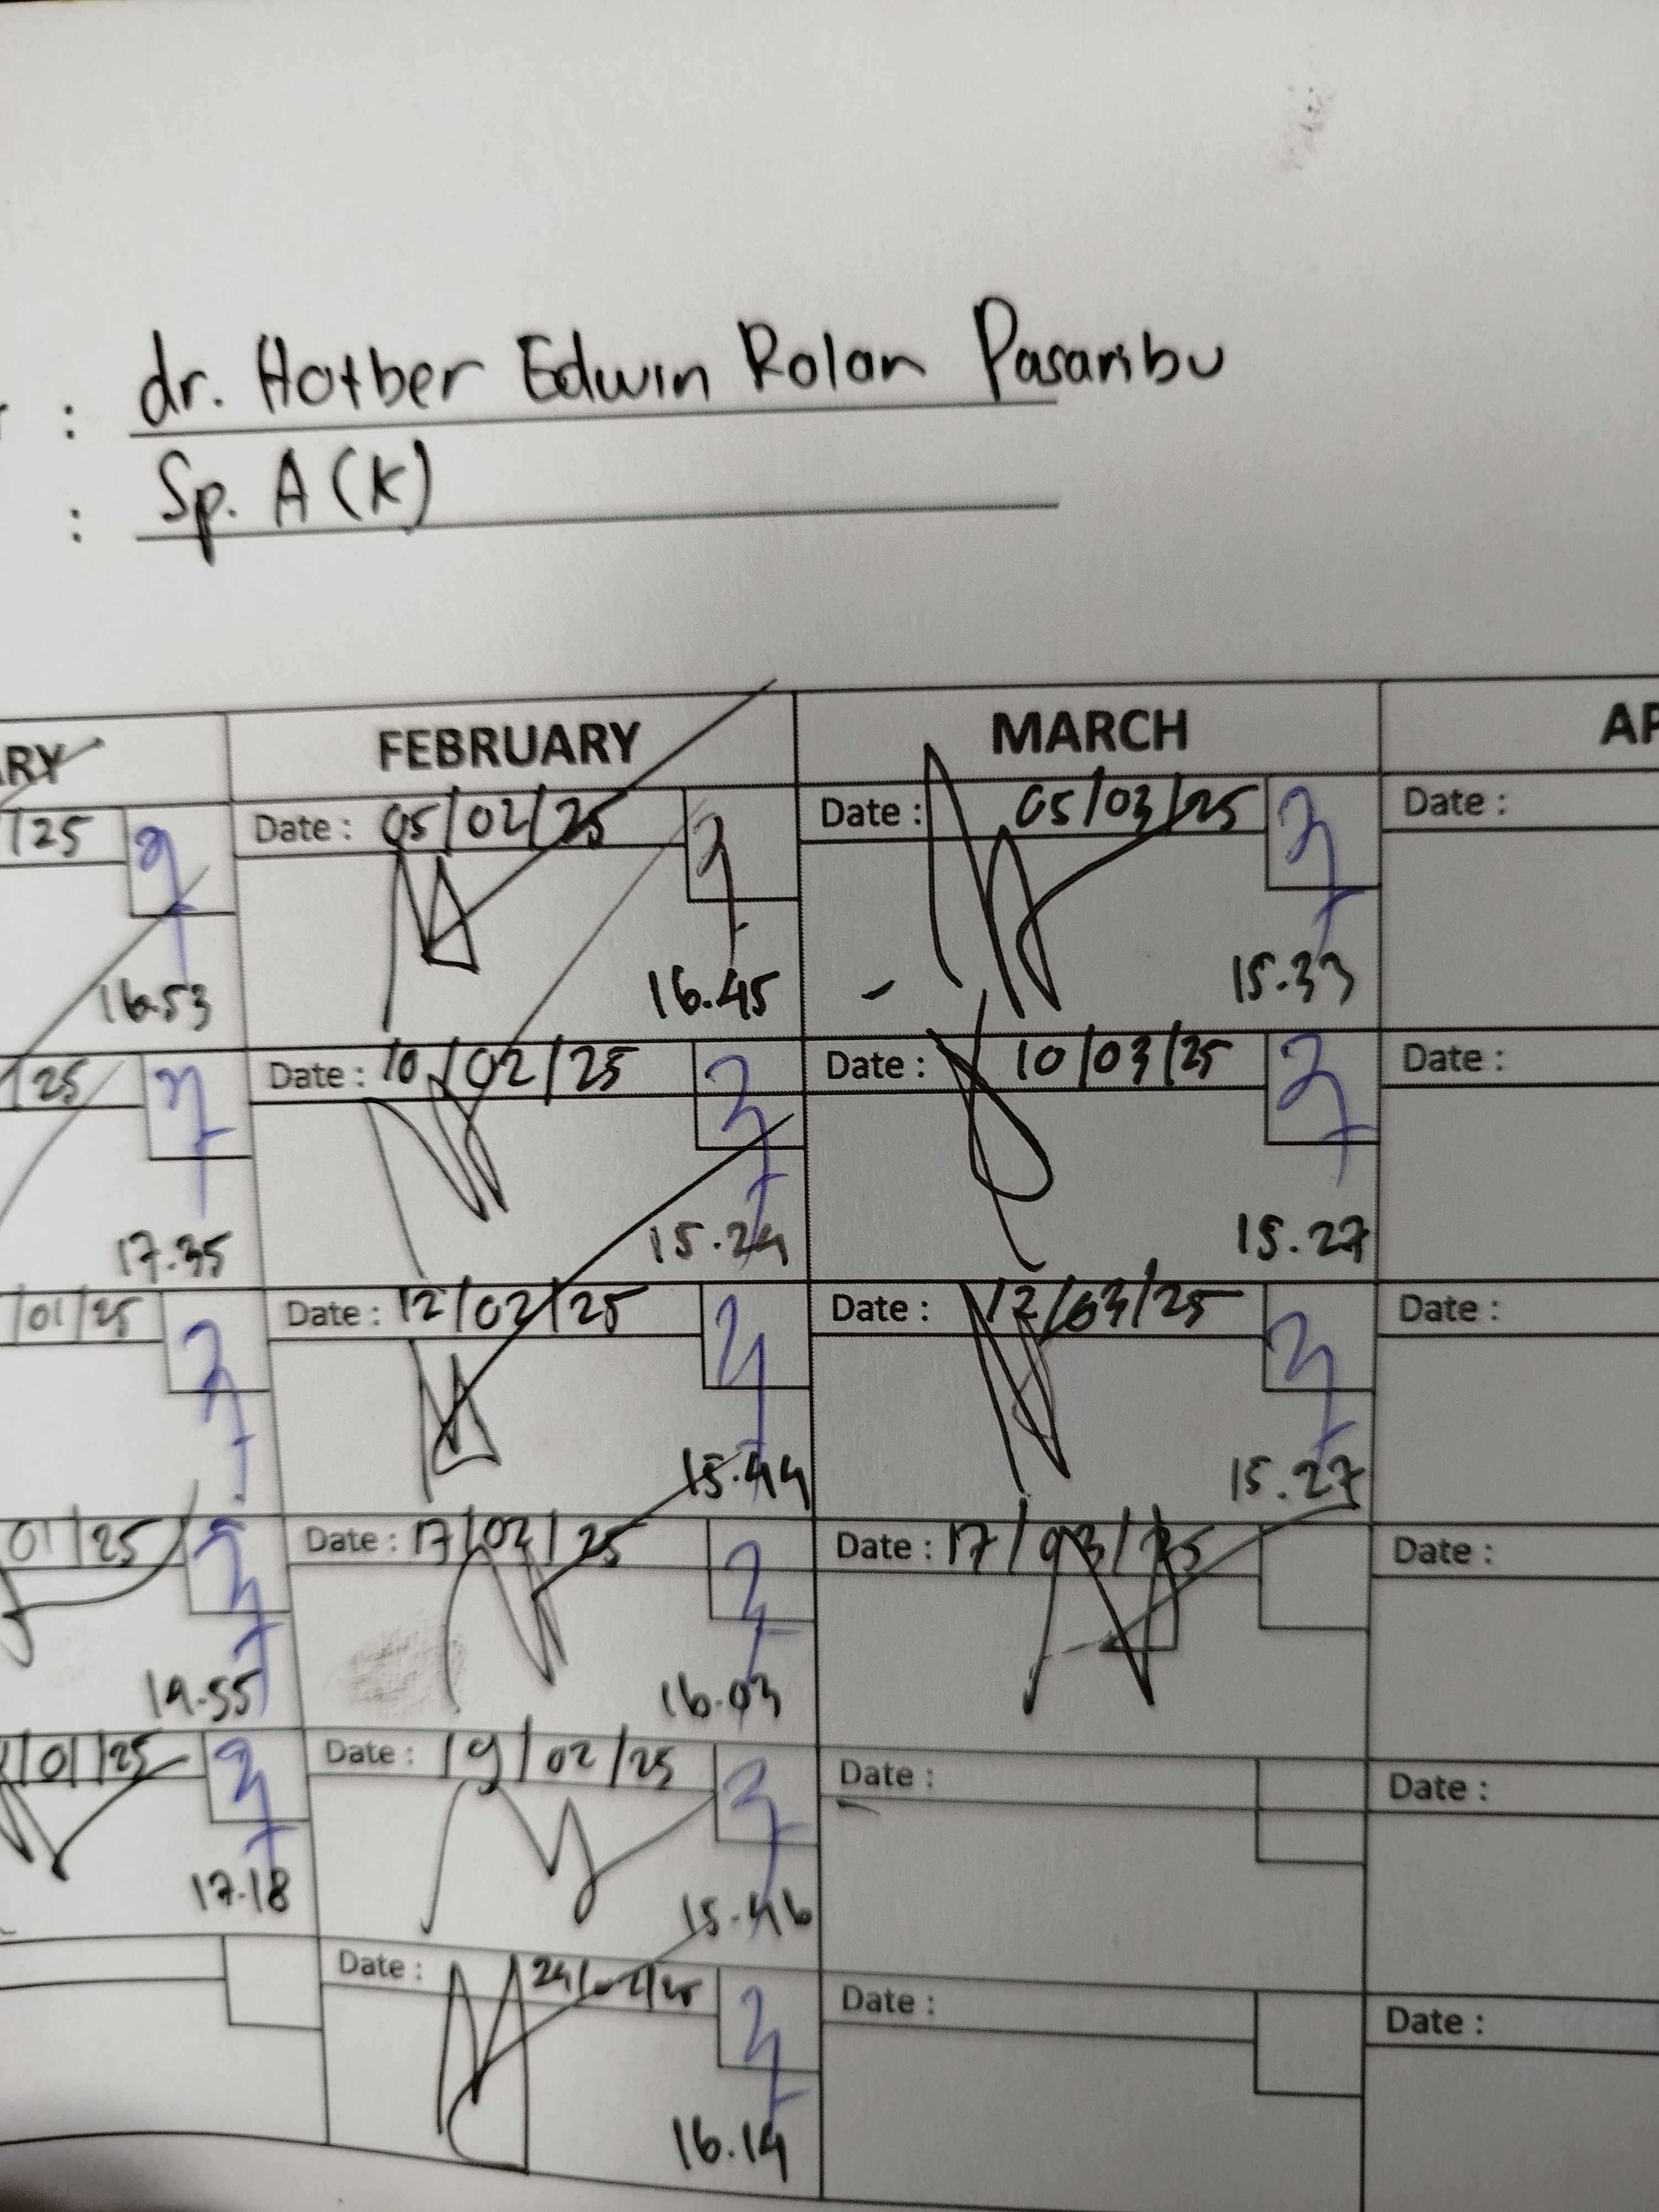 : dr. Hotber Edwin Rolan Pasaribu
: Sp. A (K)
RY FEBRUARY MARCH AP
/25 Date : 05/02/25 Date : 05/03/25 Date :
16.53 16.45 15.33
25 Date : 10/02/25 Date : 10/03/25 Date :
17.35 15.24 15.27
/01/25 Date : 12/02/25 Date : 12/03/25 Date :
15.44 15.27
01/25 Date : 17/02/25 Date : 17/03/25 Date :
14.55 16.03
/01/25 Date : 19/02/25 Date : Date :
17.18 15.46
Date : 24/02/25 Date : Date :
16.14